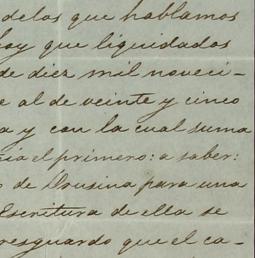 delos que hablamos
hoy que liquidados
de diez mil noveci-
e al de veinte y cinco
a y con la cual suma
cia el primero: a saber:
de Ousina para una
Escritura de ella se
resguardo que el ca-